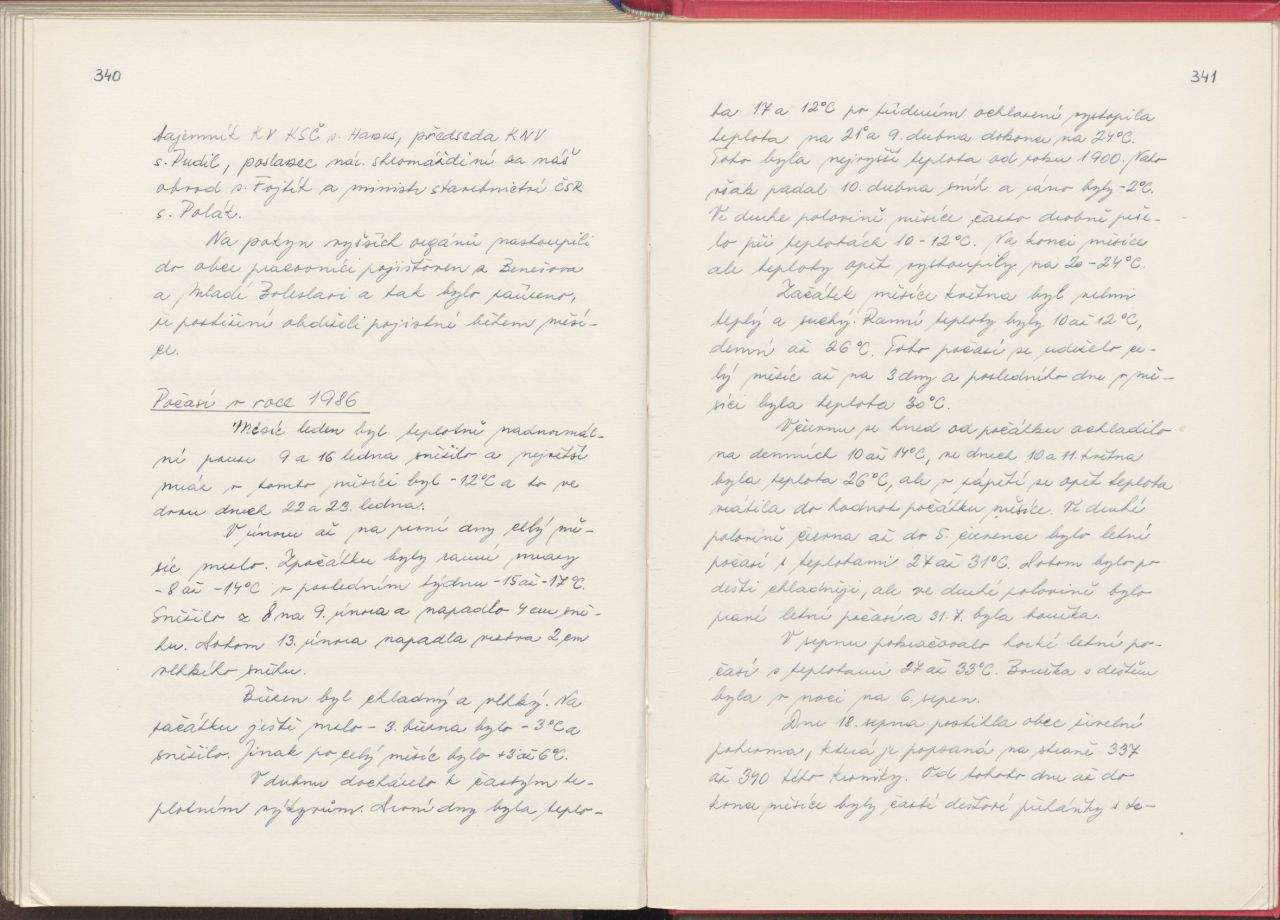 340
tajemník KV KSČ s. Hanus, předseda KNV
s. Pudil, poslanec nár. shromáždění za náš
obvod s. Fojtík a ministr stavebnictví ČSR
s. Polák.
Na pokyn vyšších orgánů nastoupili
do obce pracovníci pojišťoven z Benešova
a Mladé Boleslavi a tak bylo zařízeno,
že postižení obdrželi pojistné během měsí-
ce.
Počasí v roce 1986
Měsíc leden byl teplotně nadnormál-
ní pouze 9 a 16 ledna sněžilo a největší
mráz v tomto měsíci byl -12°C a to ve
dvou dnech 22 a 23. ledna.
V únoru až na první dny celý mě-
síc mrzlo. Zpočátku byly ranní mrazy
-8 až -14°C v posledním týdnu -15 až -17°C.
Sněžilo z 8 na 9. února a napadlo 4 cm sně-
hu. Potom 13. února napadla vrstva 2 cm
vlhkého sněhu.
Březen byl chladný a vlhký. Na
začátku ještě mrzlo - 3. března bylo -3°C a
sněžilo. Jinak po celý měsíc bylo +3 až 6°C.
V dubnu docházelo k častým te-
plotním výkyvům. První dny byla teplo-
341
ta 17 a 12°C po týdením ochlazení vystoupila
teplota na 21° a 9. dubna dokonce na 24°C.
Toto byla nejvyšší teplota od roku 1900. Nato
však padal 10. dubna sníh a ráno byly -2°C.
Ve druhé polovině měsíce často drobně prše-
lo při teplotách 10-12°C. Na konci měsíce
ale teploty opět vystoupily na 20-24°C.
Začátek měsíce května byl velmi
teplý a suchý. Ranní teploty byly 10 až 12°C,
denní až 26°C. Toto počasí se udrželo ce-
lý měsíc až na 3 dny a posledního dne v mě-
síci byla teplota 30°C.
V červnu se hned od počátku ochladilo
na denních 10 až 14°C, ve dnech 10 a 11. května
byla teplota 26°C, ale v zápětí se opět teplota
vrátila do hodnot počátku měsíce. Ve druhé
polovině června až do 5. července bylo letní
počasí s teplotami 27 až 31°C. Potom bylo po
dešti chladněji, ale ve druhé polovině bylo
pravé letní počasí a 31.7. byla bouřka.
V srpnu pokračovalo horké letní po-
časí s teplotami 27 až 33°C. Bouřka s deštěm
byla v noci na 6. srpen.
Dne 18. srpna postihla obec živelní
pohroma, která je popsaná na straně 337
až 340 této kroniky. Od tohoto dne až do
konce měsíce byly časté dešťové přeháňky s te-